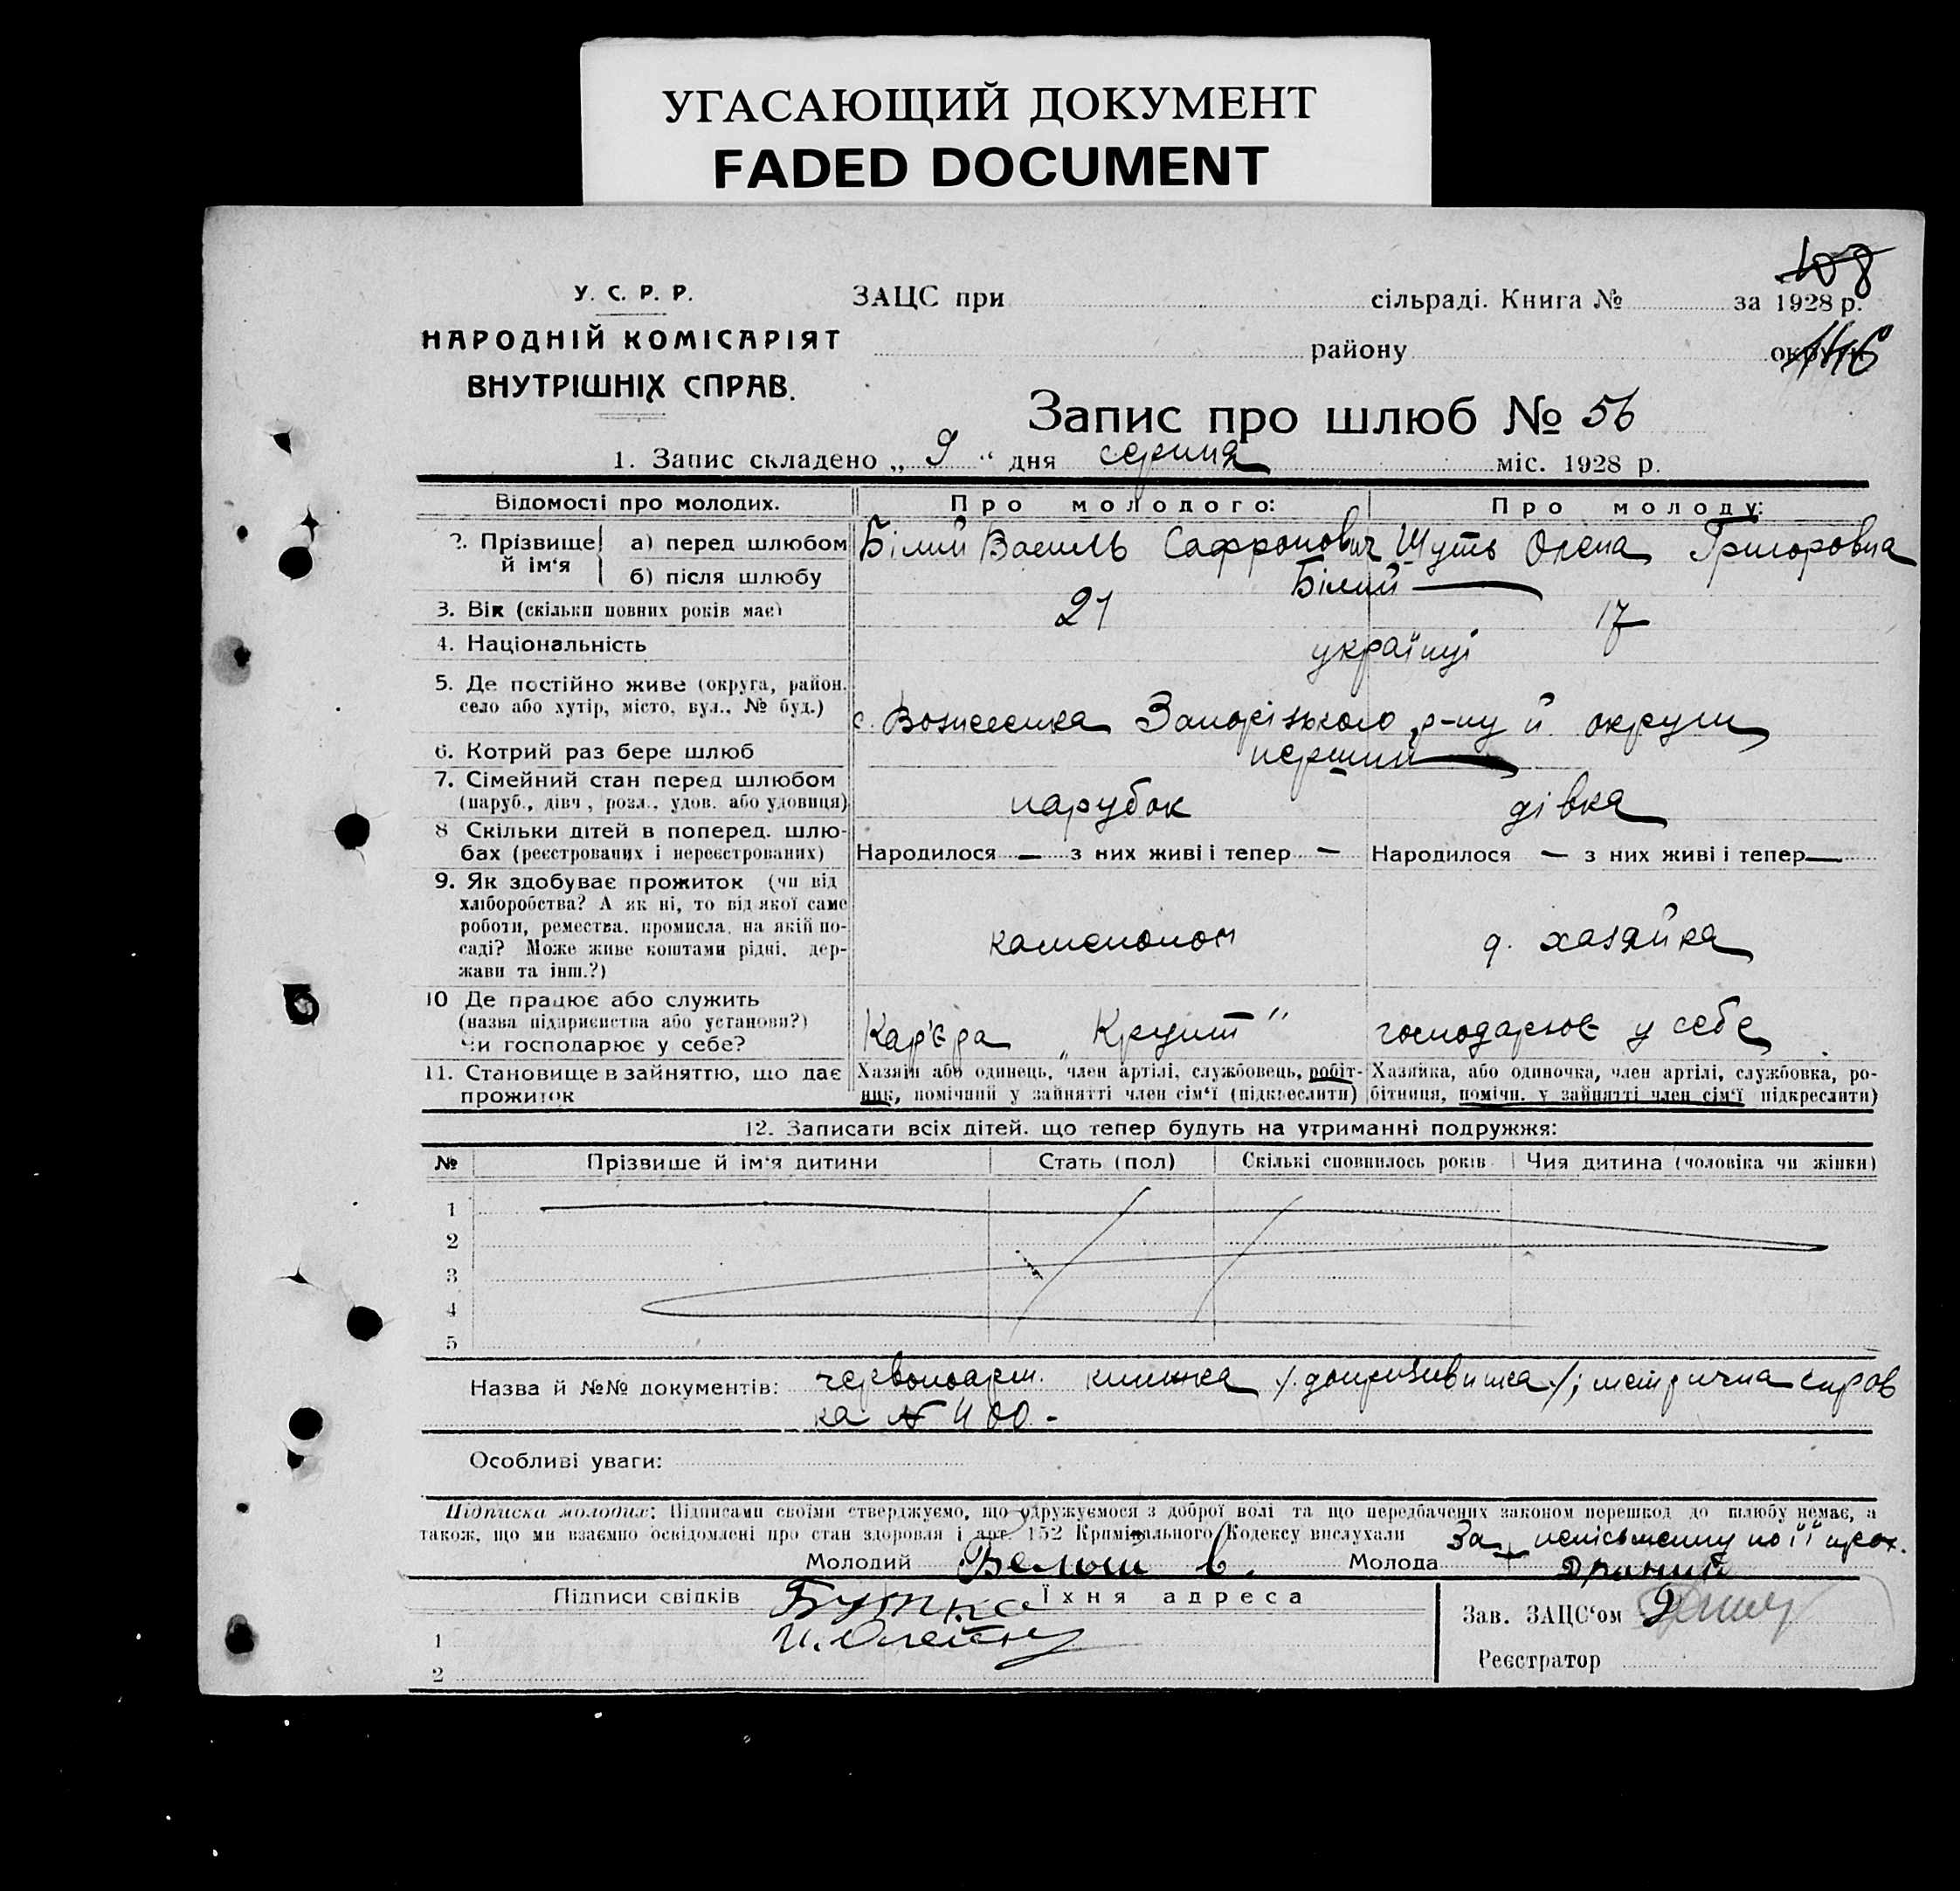 УГАСАЮЩИЙ ДОКУМЕНТ
FADED DOCUMENT
108
У. С. Р. Р.
НАРОДНІЙ КОМІСАРІЯТ
ВНУТРІШНІХ СПРАВ.
ЗАЦС при сільраді. Книга № за 1928 р.
району округи
146
Запис про шлюб № 56
1. Запис складено „ 9 “ дня серпня міс. 1928 р.
Відомості про молодих. Про молодого: Про молоду:
2. Прізвище й ім‘я а) перед шлюбом Білий Василь Сафронович Шуть Олена Григоровна
б) після шлюбу Білий
3. Вік (скільки повних років має) 21 17
4. Національність українці
5. Де постійно живе (округа, район, село або хутір, місто, вул., № буд.) с. Вознесенка Запорізького р-ну й округи
6. Котрий раз бере шлюб перший
7. Сімейний стан перед шлюбом (паруб., дівч., розл., удов. або удовиця) парубок дівка
8 Скільки дітей в поперед. шлюбах (реєстрованих і нереєстрованих) Народилося — з них живі і тепер — Народилося — з них живі і тепер —
9. Як здобуває прожиток (чи від хліборобства? А як ні, то від якої саме роботи, ремества, промисла, на якій посаді? Може живе коштами рідні, держави та інш.?) каменолом д. хазяйка
10 Де працює або служить (назва підприємства або установи?) Чи господарює у себе? Кар'єра „Крупп" господарює у себе
11. Становище в зайняттю, що дає прожиток Хазяїн або одинець, член артілі, службовець, робітник, помічний у зайнятті член сім‘ї (підкреслити) Хазяйка, або одиночка, член артілі, службовка, робітниця, помічн. у зайнятті член сім‘ї підкреслити)
12. Записати всіх дітей, що тепер будуть на утриманні подружжя:
№ Прізвище й ім‘я дитини Стать (пол) Скількі сповнилось років Чия дитина (чоловіка чи жінки)
1
2
3
4
5
Назва й №№ документів: червоноарм. книжка /допризивника/; метрична справ
ка № 400.-
Особливі уваги:
Підписка молодих: Підписами своїми стверджуємо, що одружуємося з доброї волі та що передбачених законом перешкод до шлюбу немає, а
також, що ми взаємно освідомлені про стан здоровля і арт. 152 Кримінального Кодексу вислухали
За неписьменну по її прох.
Молодий Белый В. Молода
Підписи свідків Їхня адреса
Бутко
1
2
Зав. ЗАЦС‘ом
Реєстратор